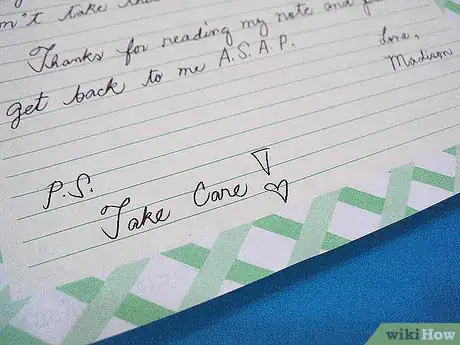 n't take
Thanks for reading my note and
get back to me A.S.A.P.
Love,
Madison
P.S.
Take Care!
wikiHow